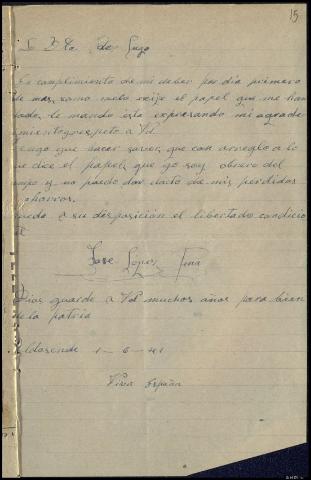 15
Sr D Ta de Lugo
En cumplimiento de mi deber por dia primero
de mes, como meto exije el papel que me han
dado, le mando esta expresando mi agrade
cimiento respeto a Vd
Tengo que hacer savier, que con arreglo a lo
que dice el papel, que yo soy obrero del
campo y no puedo dar dacto de mis perdidas
y ahorros.
Quedo a su disposición el libertado condicio
José López
Dios guarde a Vd muchos años para bien
de la patria
Aldosende 1-6-41
Viva España